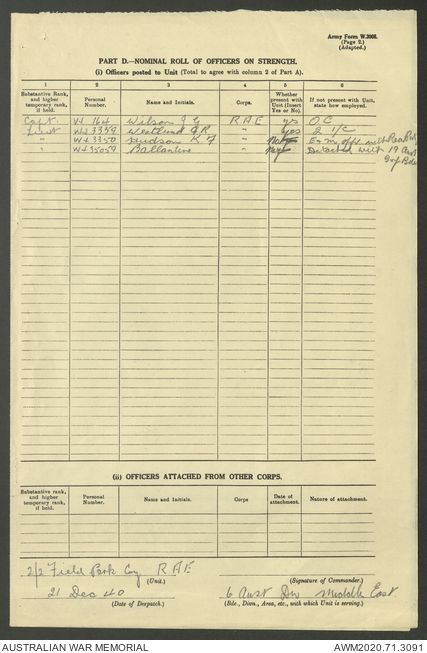 Army Form W.3008.
(Page 2.)
(Adapted.)
PART D.—NOMINAL ROLL OF OFFICERS ON STRENGTH.
(i) Officers posted to Unit (Total to agree with column 2 of Part A).
1 2 3 4 5 6
Substantive Rank, and higher temporary rank, if held. Personal Number. Name and Initials. Corps. Whether present with Unit (Insert Yes or No). If not present with Unit, state how employed.
Capt. Wilson J G RAE yes OC
Lieut WX3359 Westlund G R " yes 2 I/C
" WX3350 Hudson K F "
" WX35059 Ballantine " Detached with 19 Aust
(ii) OFFICERS ATTACHED FROM OTHER CORPS.
Substantive rank, and higher temporary rank, if held. Personal Number. Name and Initials. Corps Date of attachment. Nature of attachment.
2/2 Field Park Coy RAE
(Unit.) (Signature of Commander.)
21 Dec 40 6 Aust Div Middle East
(Date of Despatch.) (Bde., Divn., Area, etc., with which Unit is serving.)
AUSTRALIAN WAR MEMORIAL AWM2020.71.3091